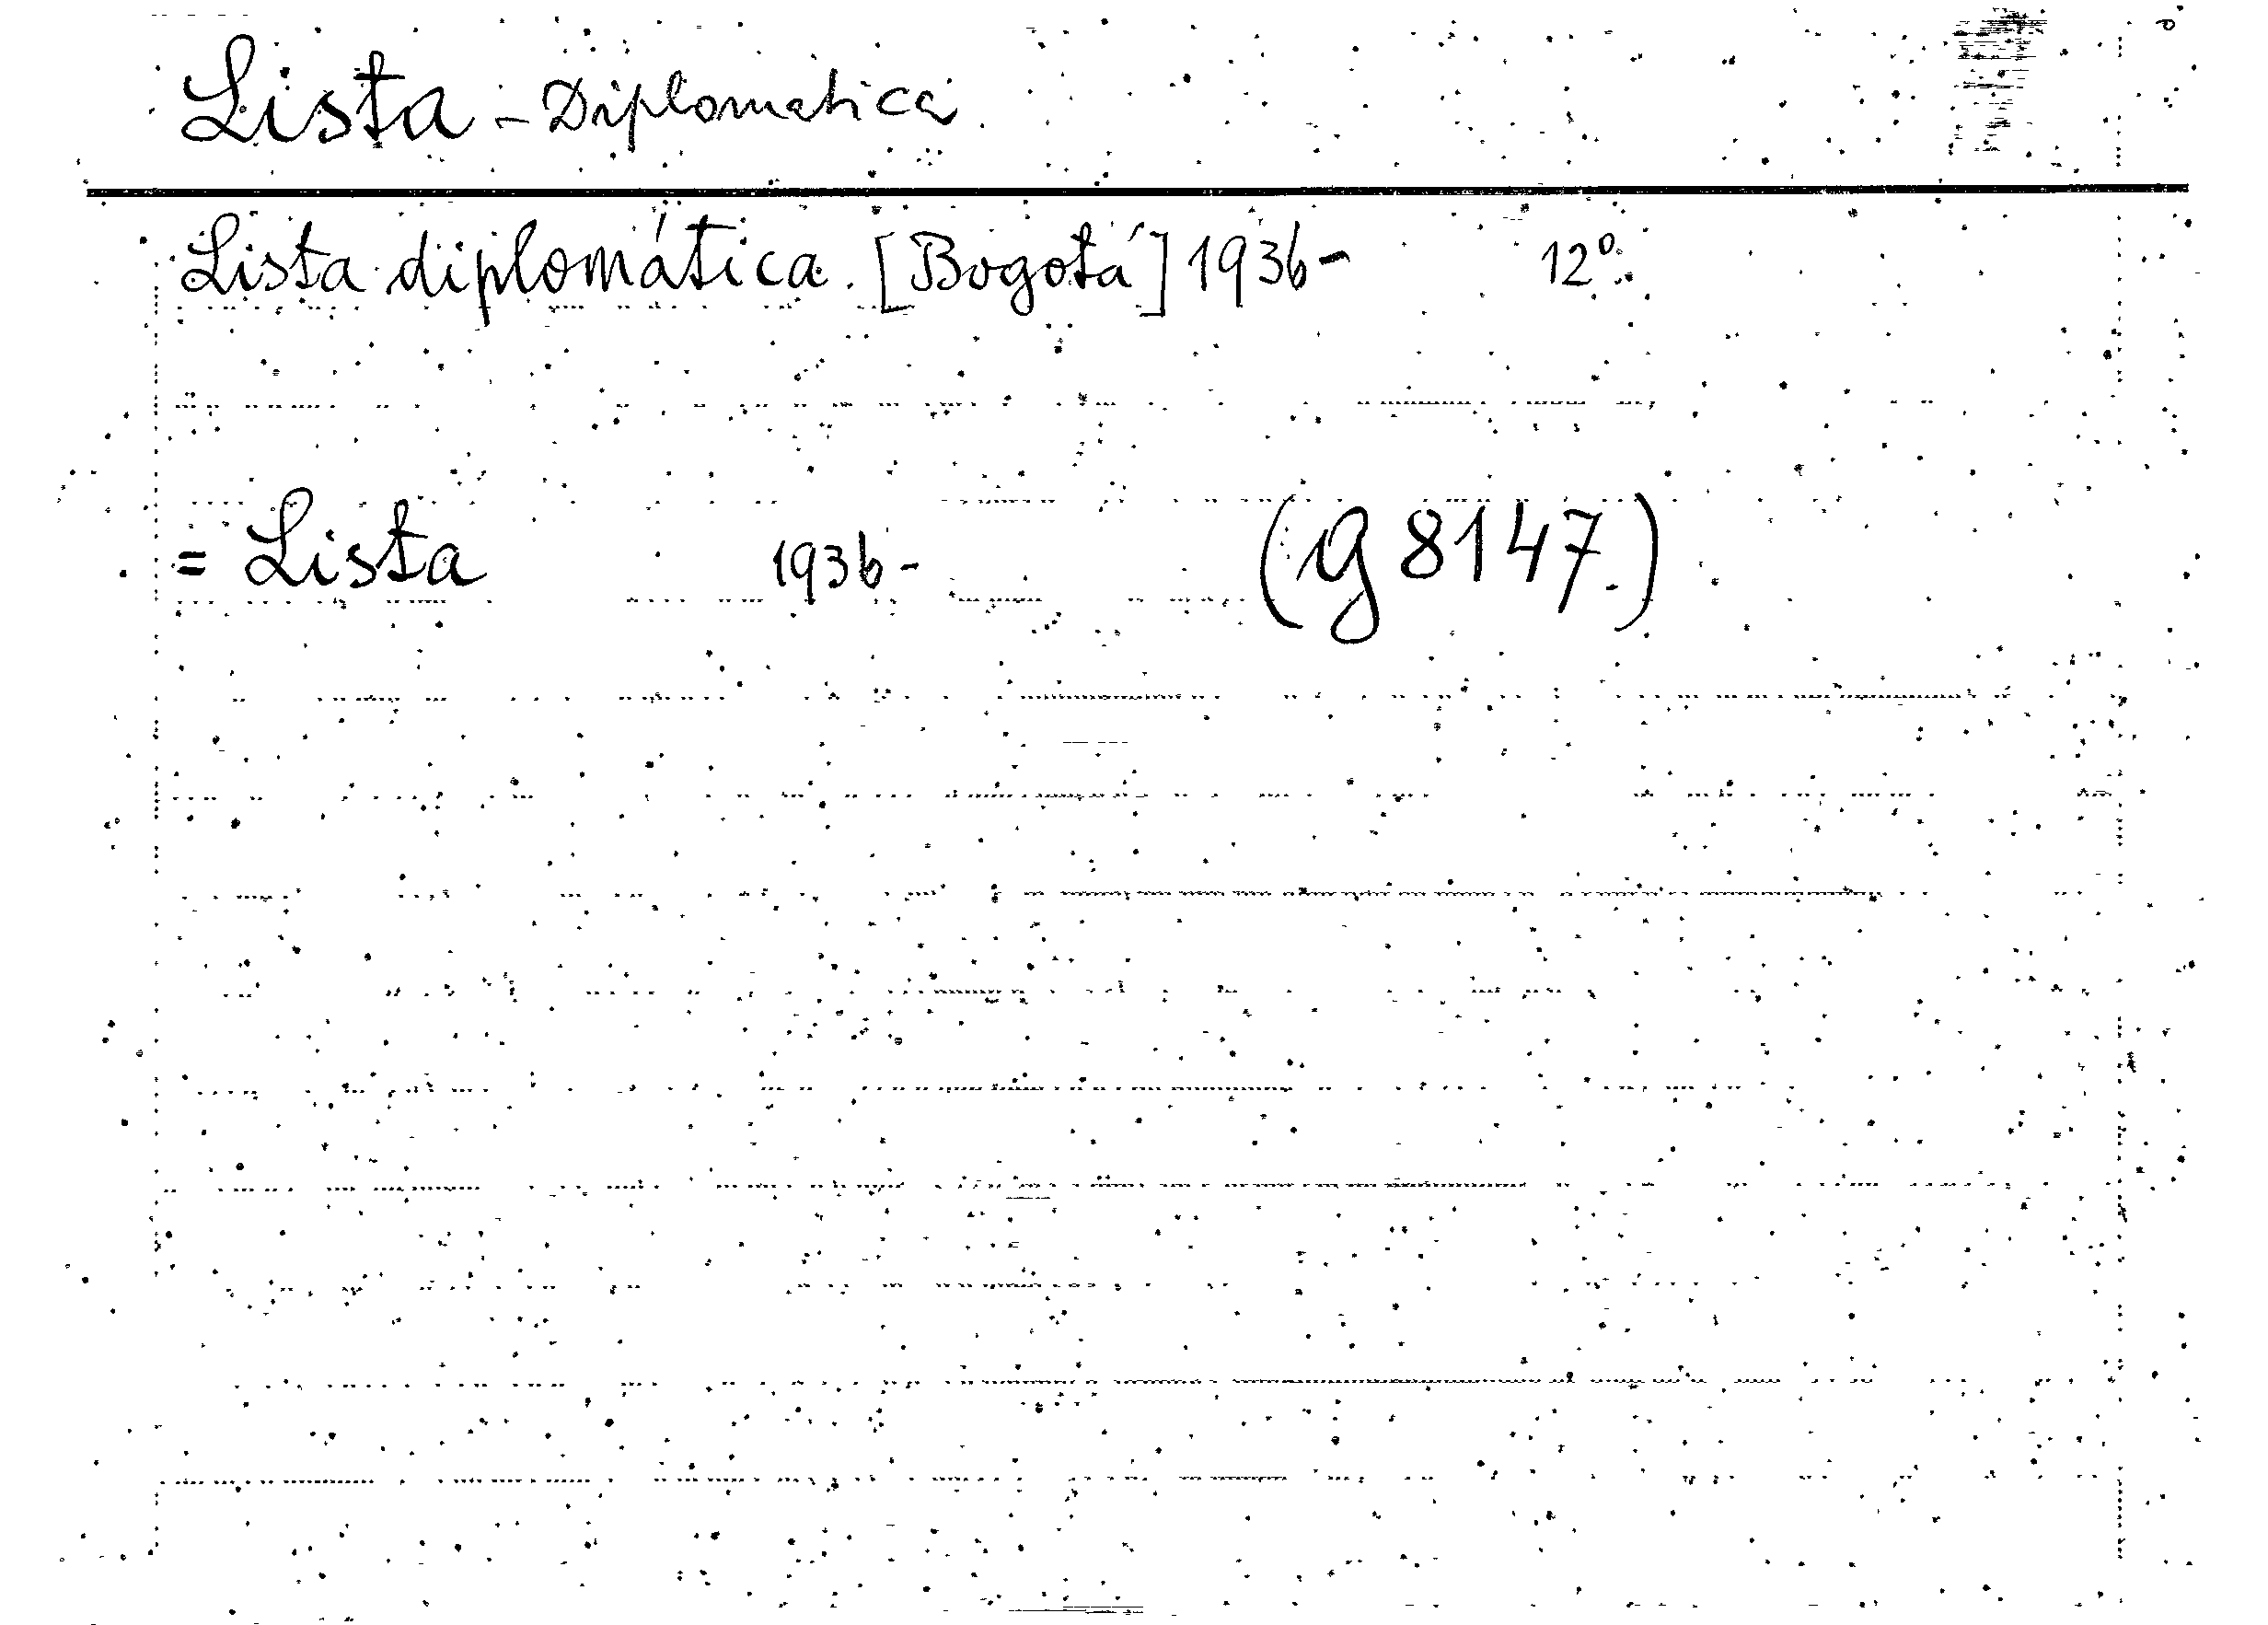 Lista - Diplomatica
Lista diplomática. [Bogotá] 1936- 12°.
= Lista 1936- (g 8147.)